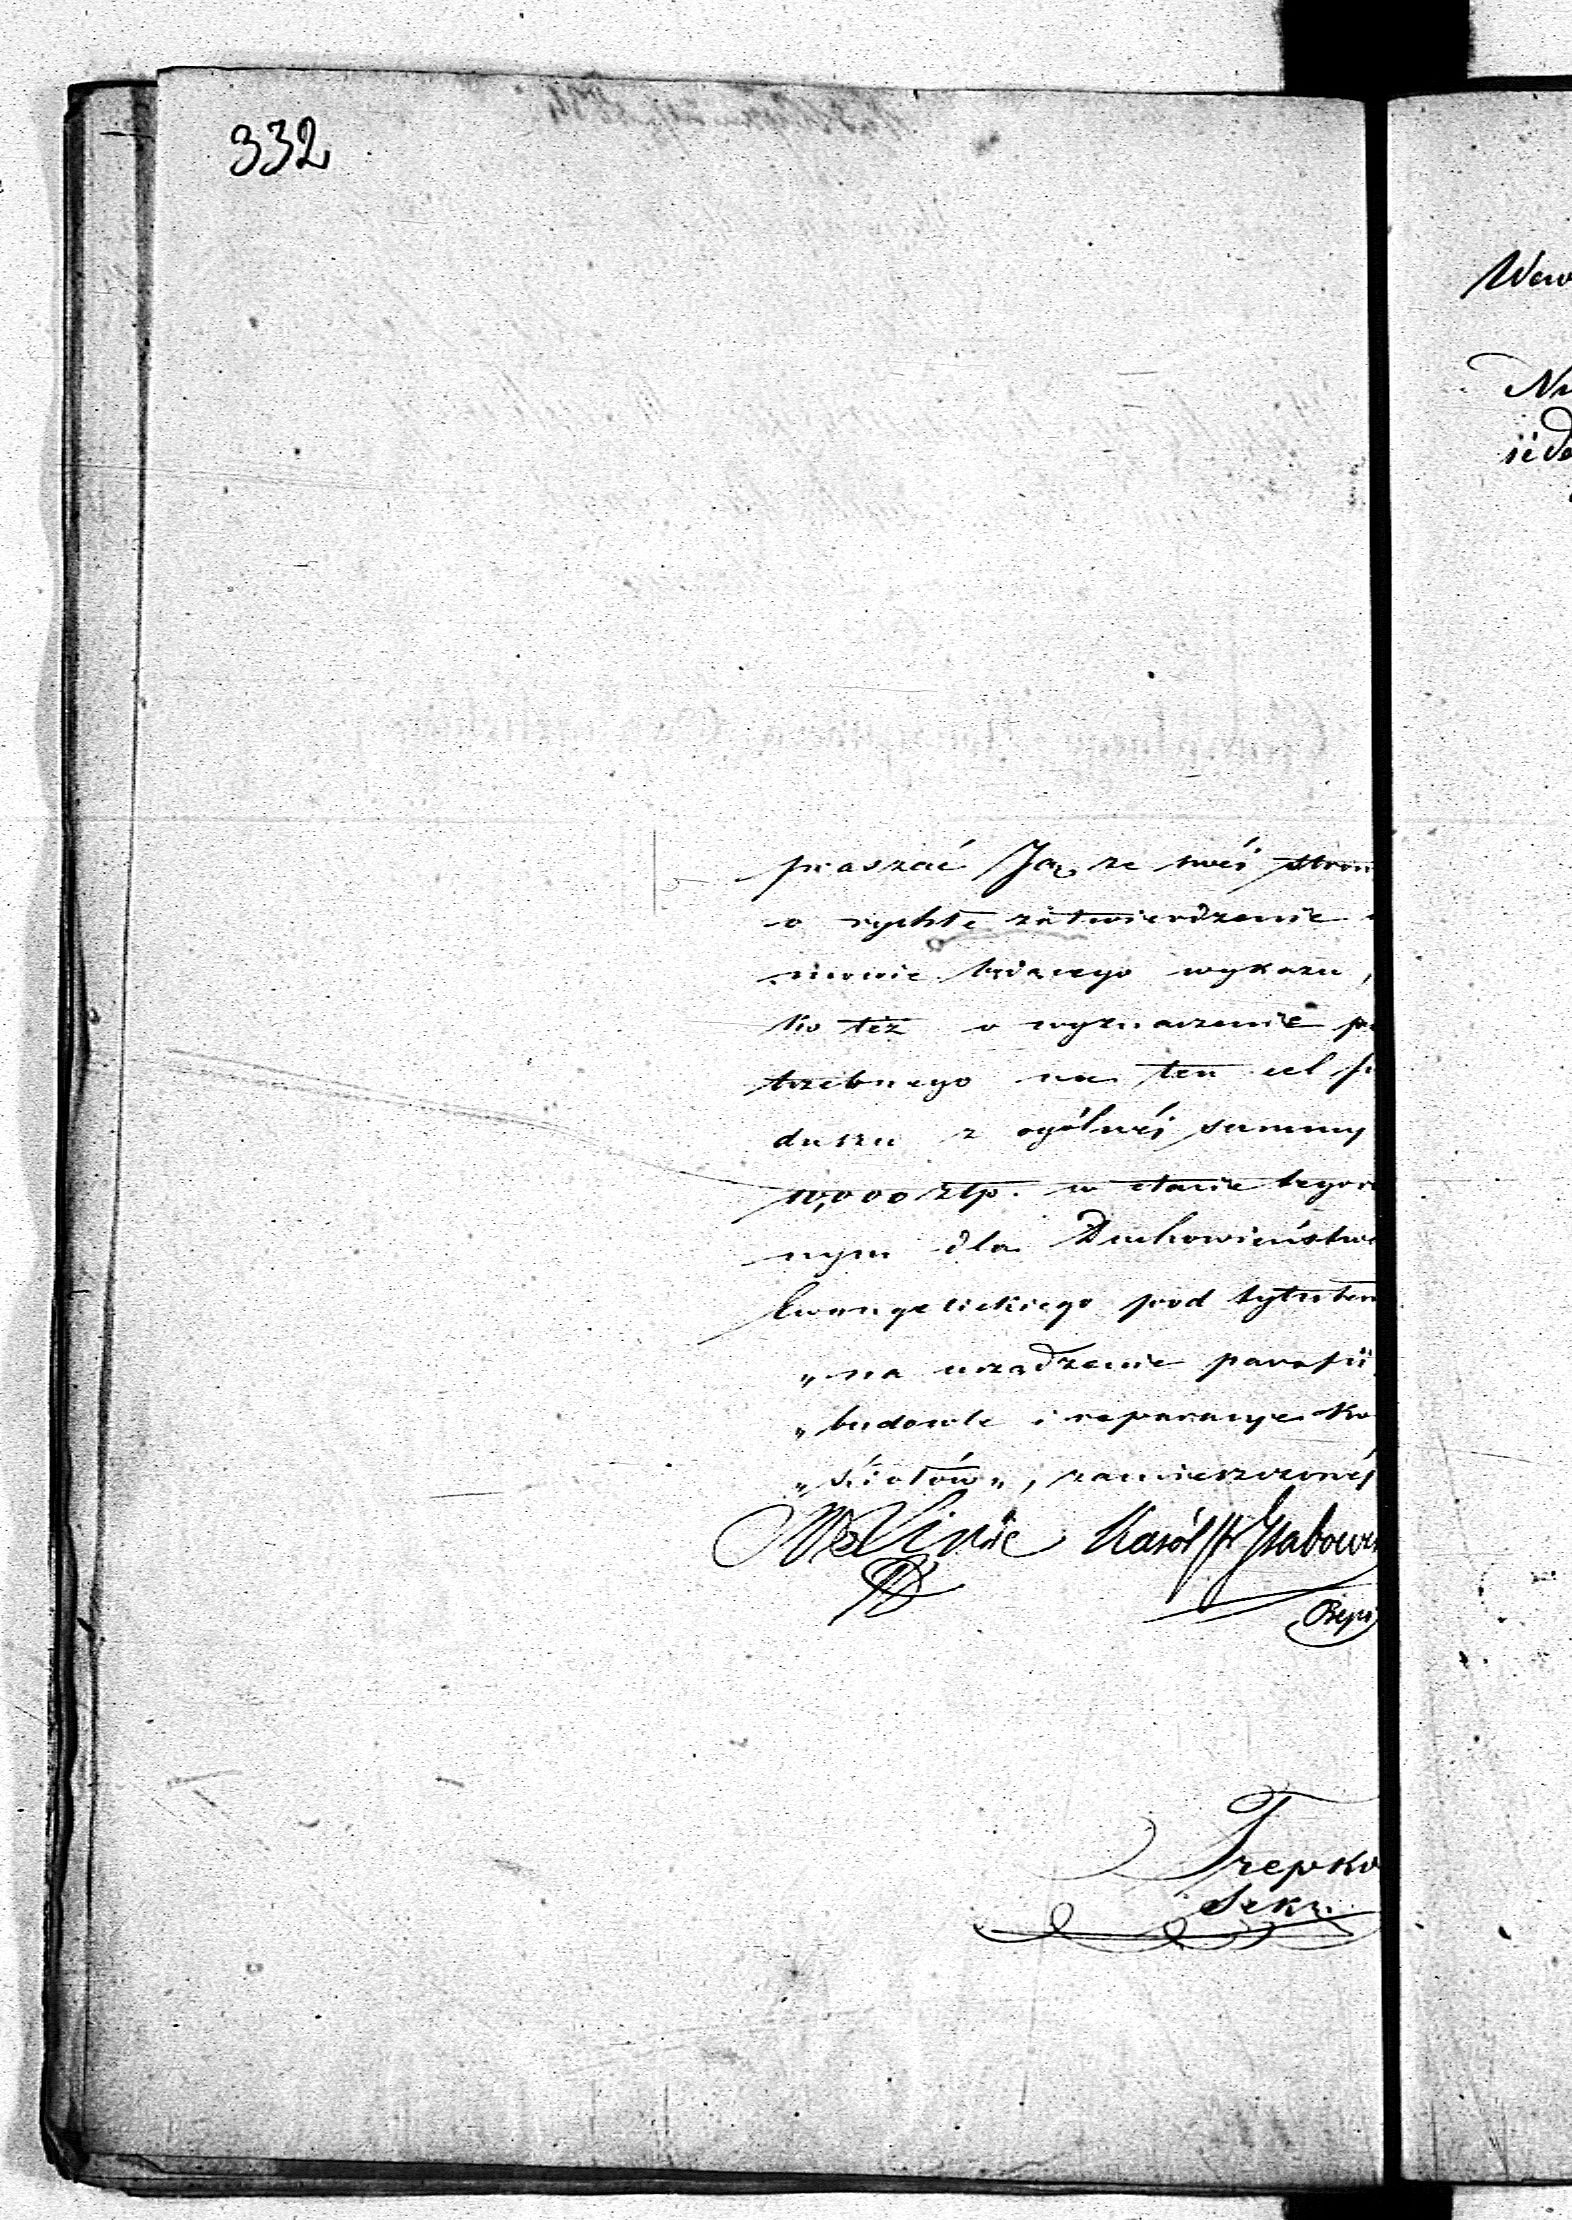 332
praszać Ją, ze swéj stron
o rychłe zatwierdzenie
mowie będącego wykazu,
ko też o wyznaczenie po
trzebnego na ten cel fu
duszu z ogólnéj summy
10,000 złp. w etacie tegoro
nym dla Duchowieństwa
Ewangelickiego pod tytułem
„na urządzenie parafii,
„budowle i reparacye Ko
„ściołów„, zamieszczonéj
Karól
Trepko
Sekr.
Wew
Nr